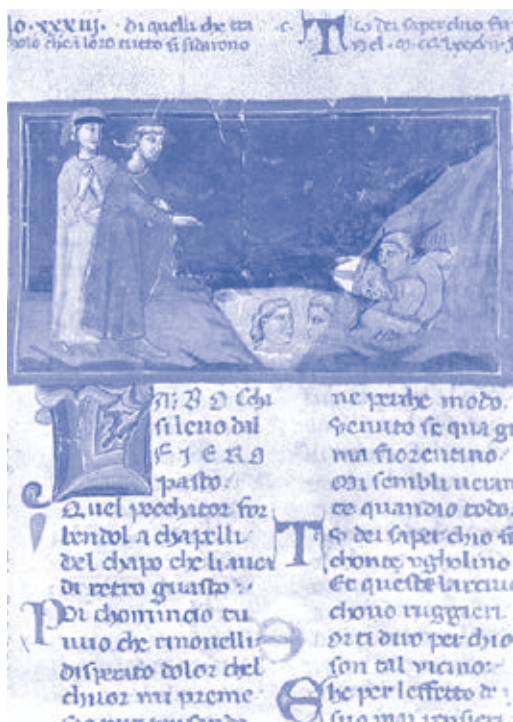 lo. xxxiij. Di quelli che tra
che i loro tutto si fidarono
Tu dei saper chio fu
nel
si leuo dal
FIERO
pasto.
Quel pecchator for
bendol a chapelli
del chapo che li auea
di retro guasto
Poi chomincio tu
uuo che rinouelli
disperato dolor chel
chuor mi preme
ne perche modo.
Venuto se qua gi
ma fiorentino
Mi sembli ueram
te quandio todo.
Tu dei saper chio fu
chonte vgholino
Et queste larciue
chouo ruggieri.
Or ti diro per chio
son tal uicino
Che per leffetto de i
suo mai pensieri